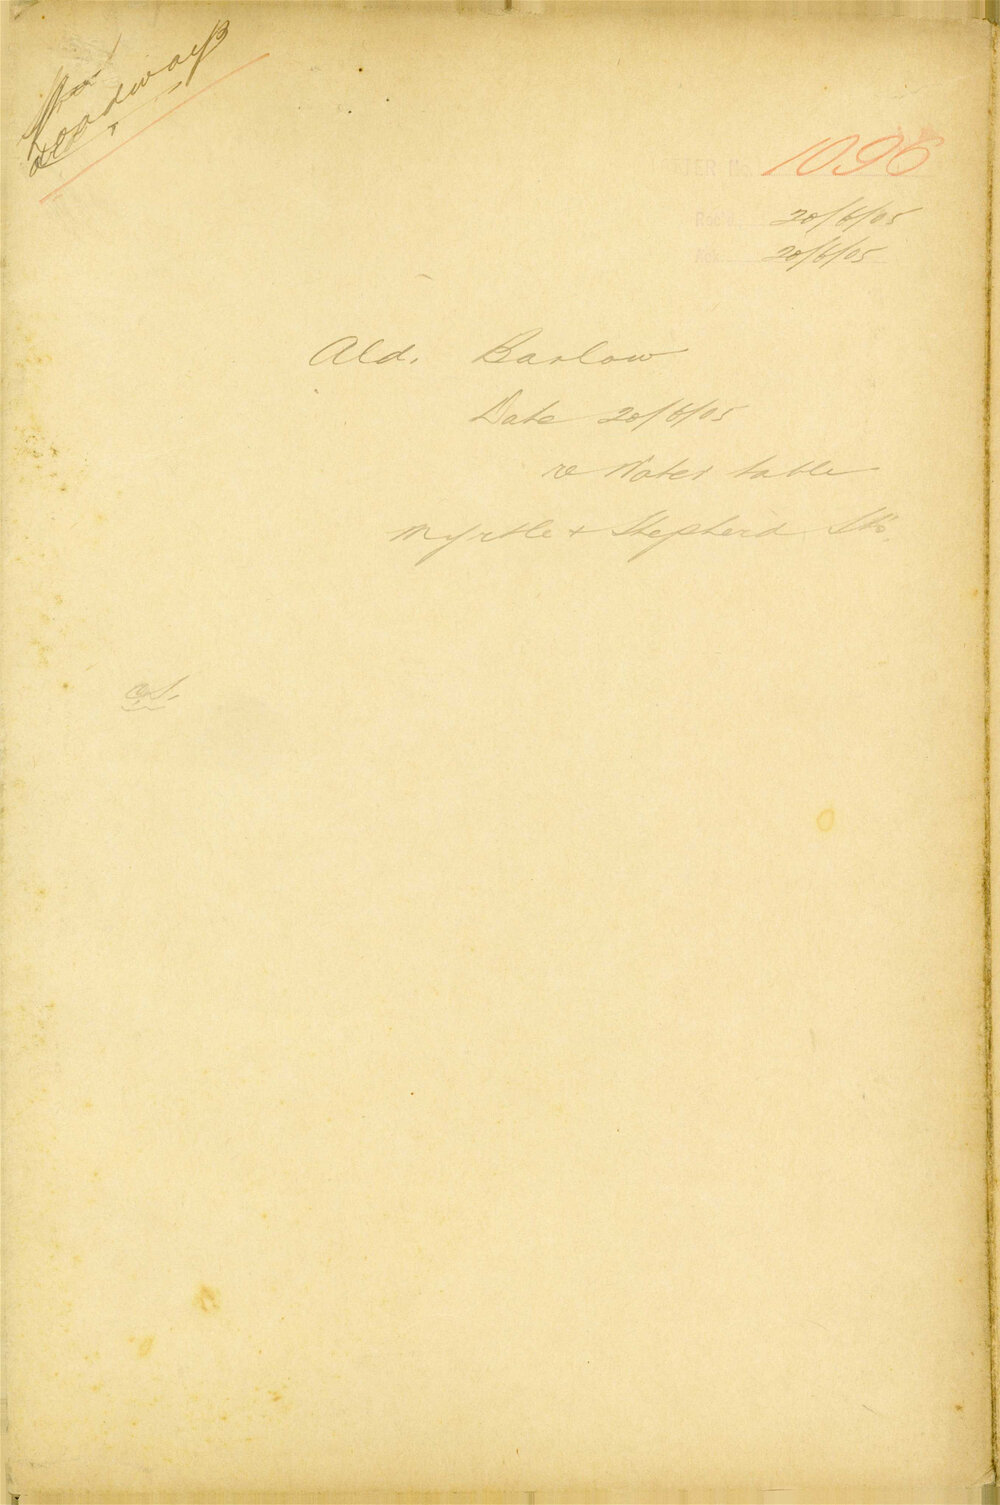 Roadways
LETTER No. 1096
Rec'd 20/6/05
Ack. 20/6/05
Ald. Barlow
Date 20/6/05
re Water table
Myrtle + Shepherd Sts.